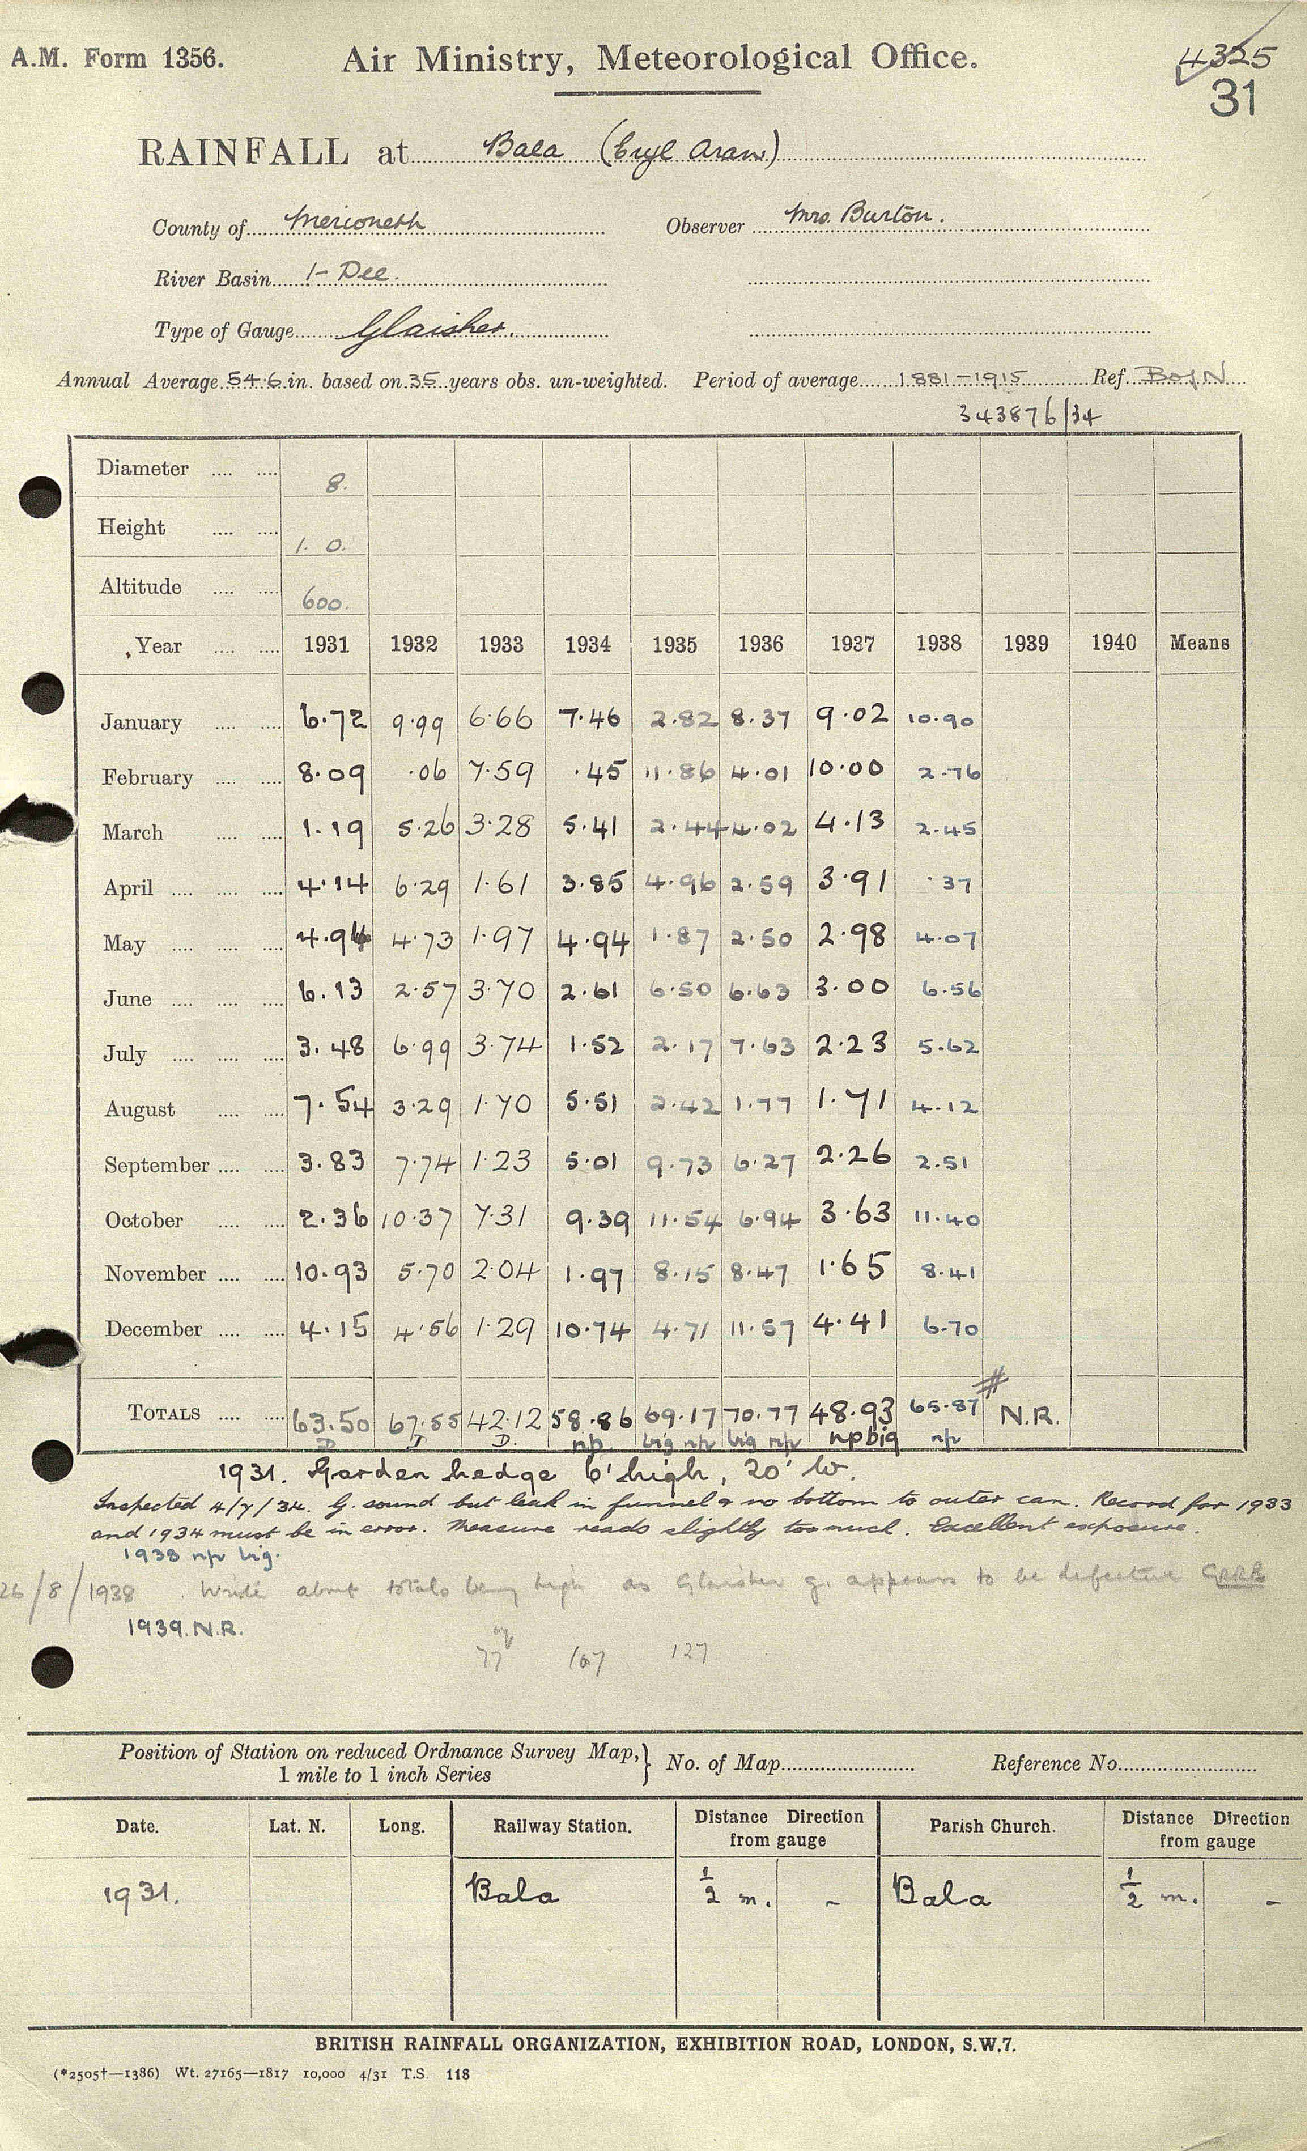 A.M. Form 1356.
Air Ministry, Meteorological Office.
4325
31
RAINFALL at Bala (Eryl Aran)
County of Merioneth Observer Mrs. Burton.
River Basin 1- Dee.
Type of Gauge Glaisher.
Annual Average 54.6 in. based on 35 years obs. un-weighted. Period of average 1881-1915 Ref. B of N
343876/34
Diameter .... .... 8.
Height .... .... 1. 0.
Altitude .... .... 600.
Year .... .... 1931 1932 1933 1934 1935 1936 1937 1938 1939 1940 Means
January .... .... 6.72 9.99 6.66 7.46 2.82 8.37 9.02 10.90
February .... .... 8.09 .06 7.59 .45 11.86 4.01 10.00 2.76
March .... .... 1.19 5.26 3.28 5.41 2.44 4.02 4.13 2.45
April .... .... .... 4.14 6.29 1.61 3.85 4.96 2.59 3.91 .37
May .... .... .... 4.94 4.73 1.97 4.94 1.87 2.50 2.98 4.07
June .... .... .... 6.13 2.57 3.70 2.61 6.50 6.63 3.00 6.56
July .... .... .... 3.48 6.99 3.74 1.52 2.17 7.63 2.23 5.62
August .... .... 7.54 3.29 1.70 5.51 2.42 1.77 1.71 4.12
September .... .... 3.83 7.74 1.23 5.01 9.73 6.27 2.26 2.51
October .... .... 2.36 10.37 7.31 9.39 11.54 6.94 3.63 11.40
November .... .... 10.93 5.70 2.04 1.97 8.15 8.47 1.65 8.41
December .... .... 4.15 4.56 1.29 10.74 4.71 11.57 4.41 6.70
TOTALS .... .... 63.50 67.55 42.12 58.86 69.17 70.77 48.93 65.87 # N.R.
D I D. np. big np big np np big np
1931. Garden hedge 6' high, 20' W.
Inspected 4/7/34. G. sound but leak in funnel & no bottom to outer can. Record for 1933
and 1934 must be in error. Measure reads slightly too much. Excellent exposure.
1938 np big.
26/8/1938 Write about totals being high as Glaisher g. appears to be defective
1939. N.R.
77 167 127
Position of Station on reduced Ordnance Survey Map,} No. of Map Reference No.
1 mile to 1 inch Series
Date. Lat. N. Long. Railway Station. Distance Direction from gauge Parish Church. Distance Direction from gauge
1931. Bala 1/2 m. - Bala 1/2 m. -
BRITISH RAINFALL ORGANIZATION, EXHIBITION ROAD, LONDON, S.W.7.
(*2505†—1386) Wt. 27165—1817 10,000 4/31 T.S. 118